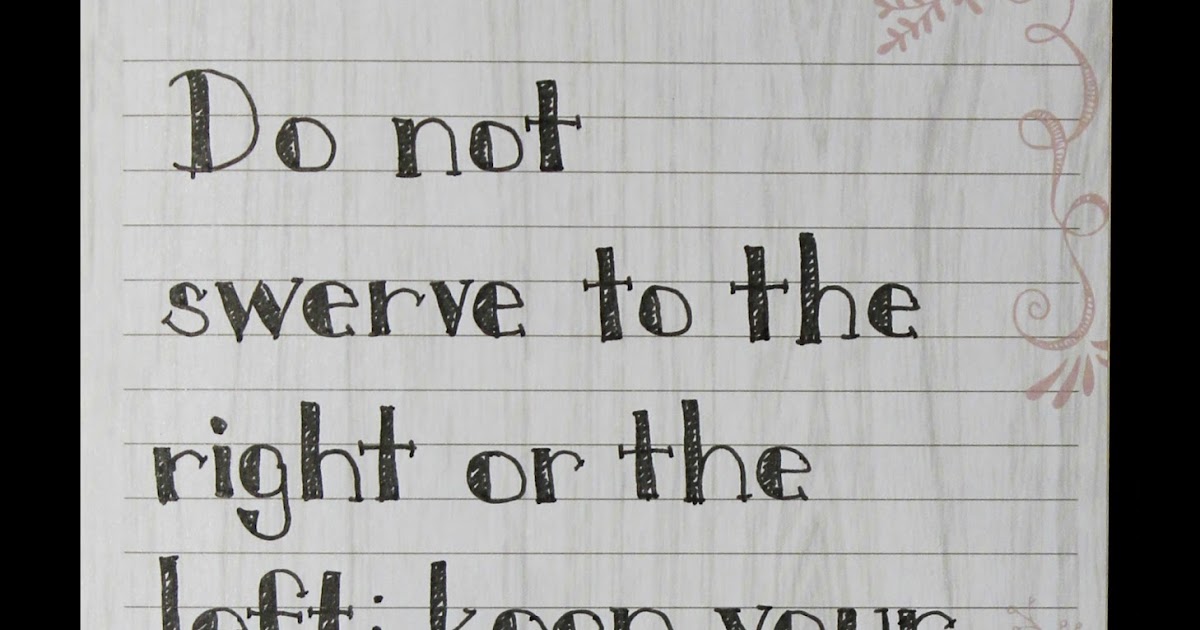 Do not
swerve to the
right or the
left; keep your